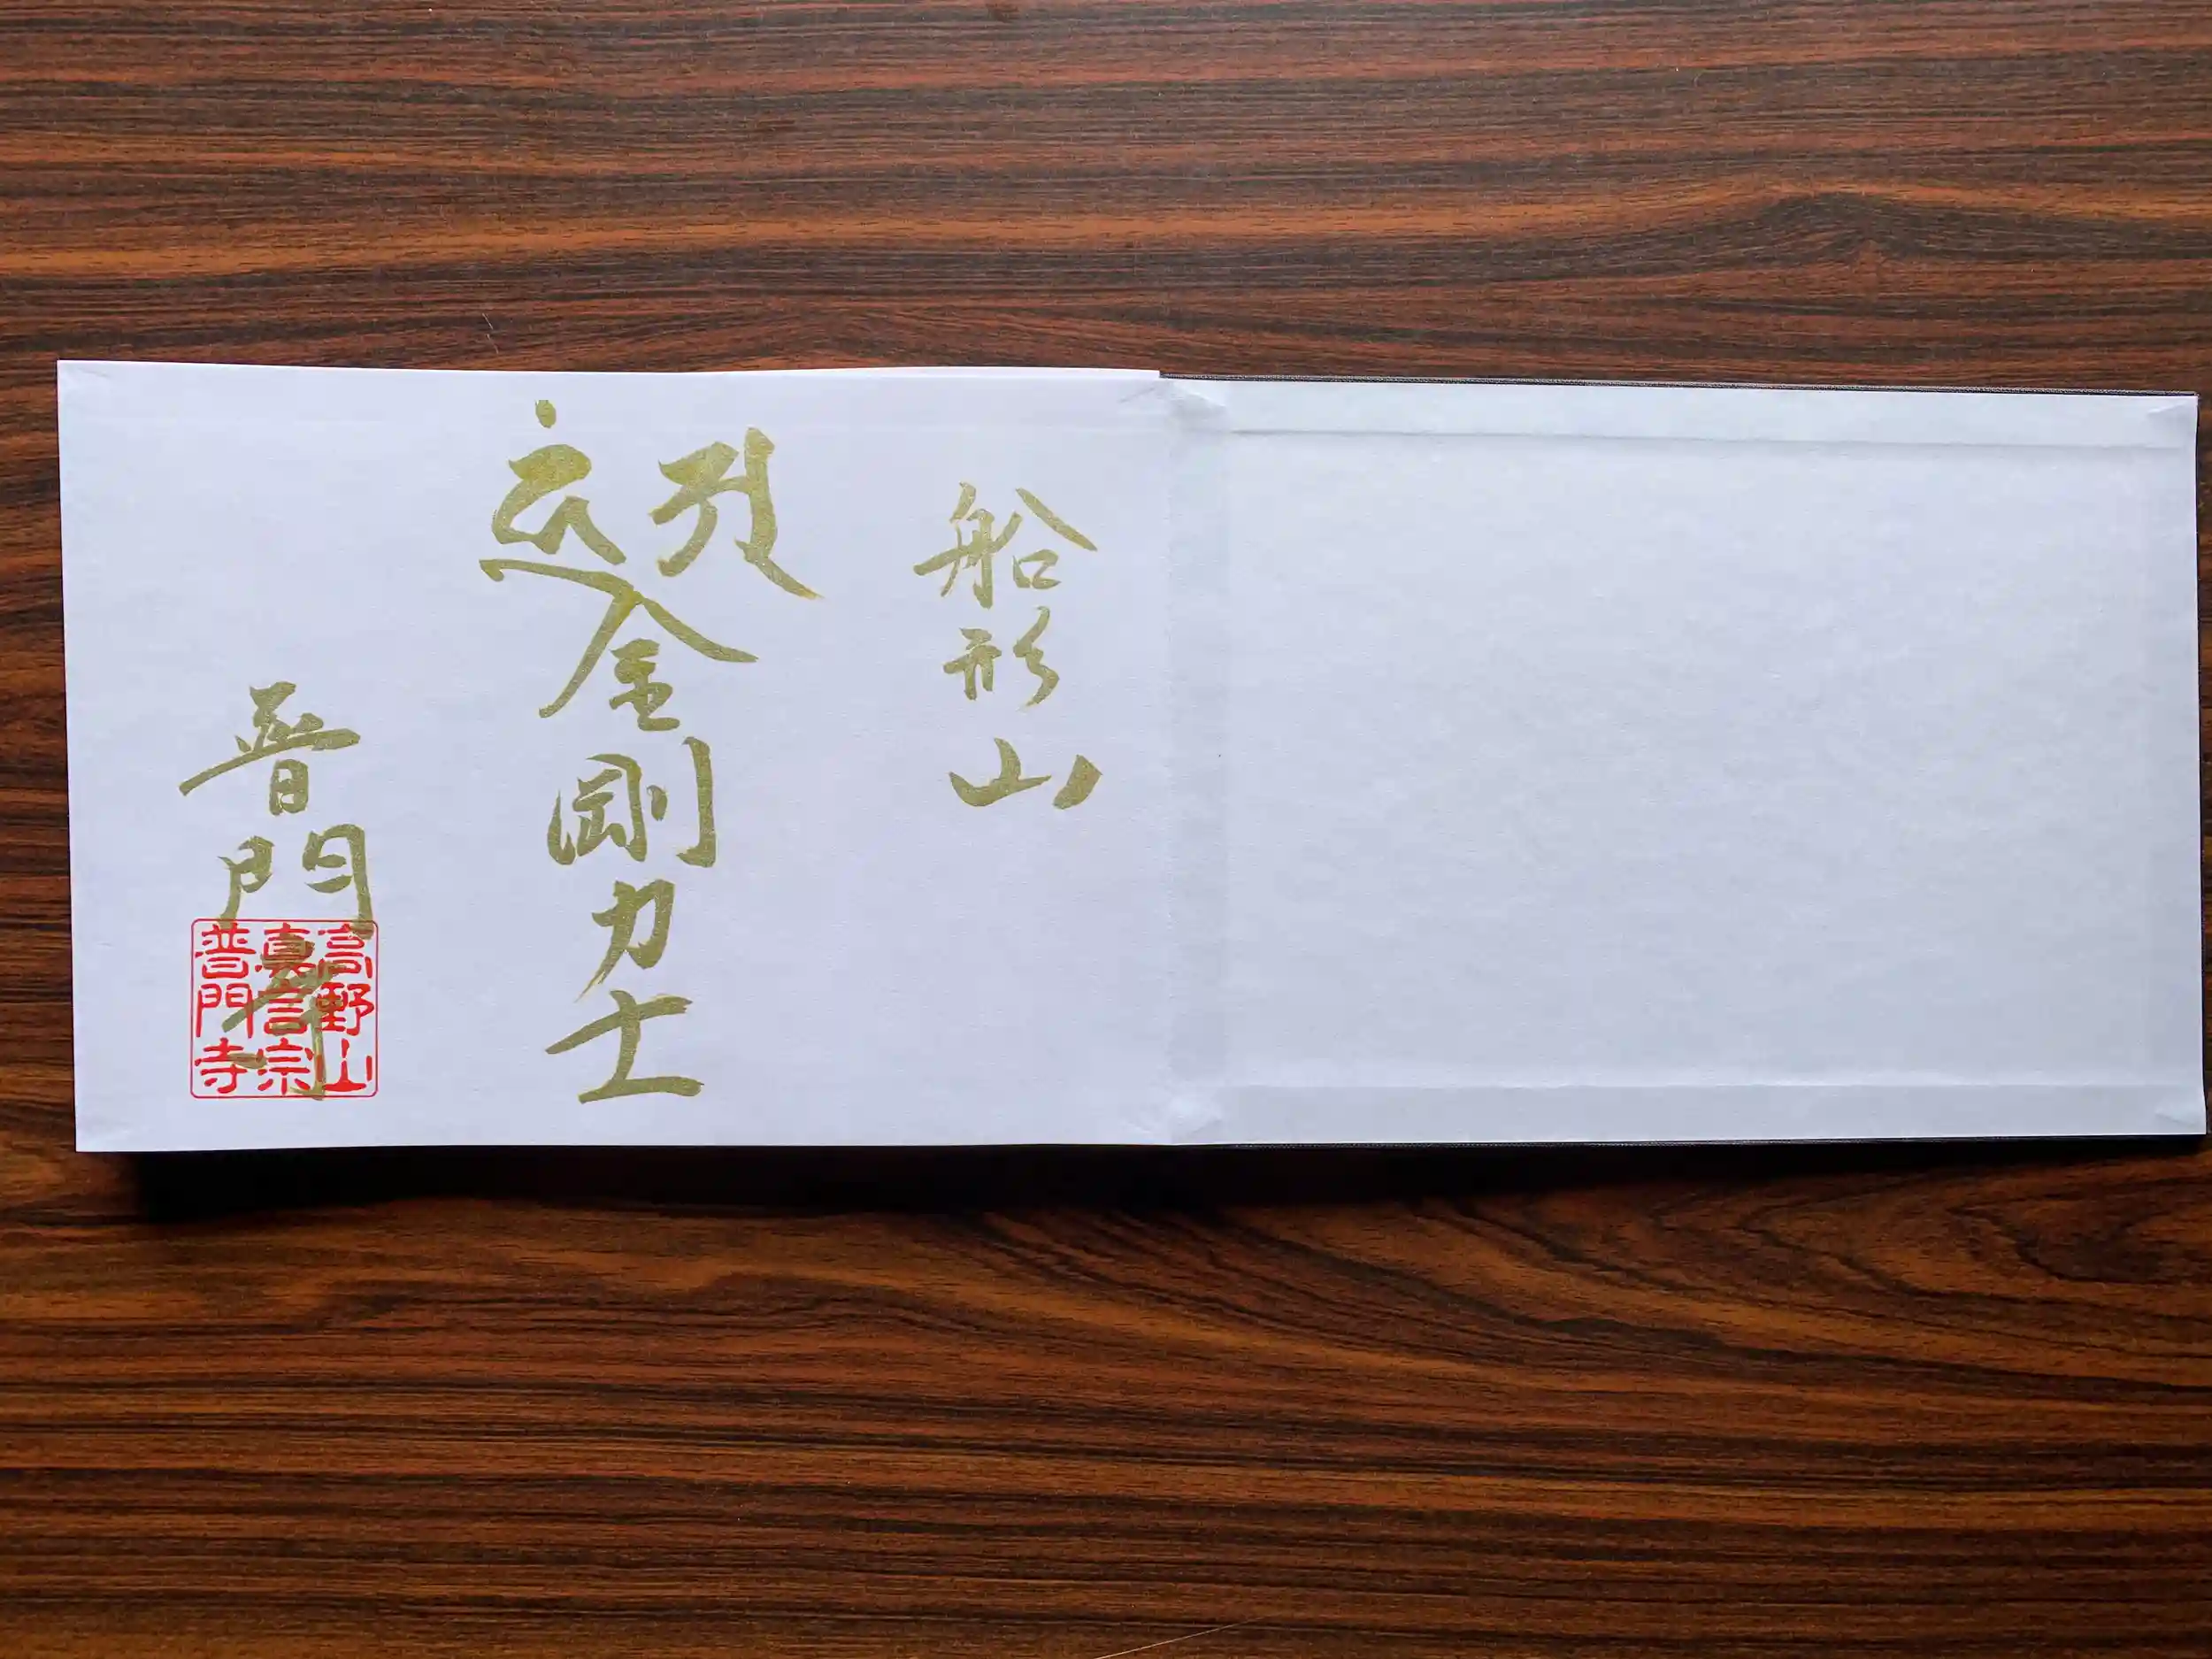 船形山
金剛力士
普門寺
高野山
真言宗
普門寺